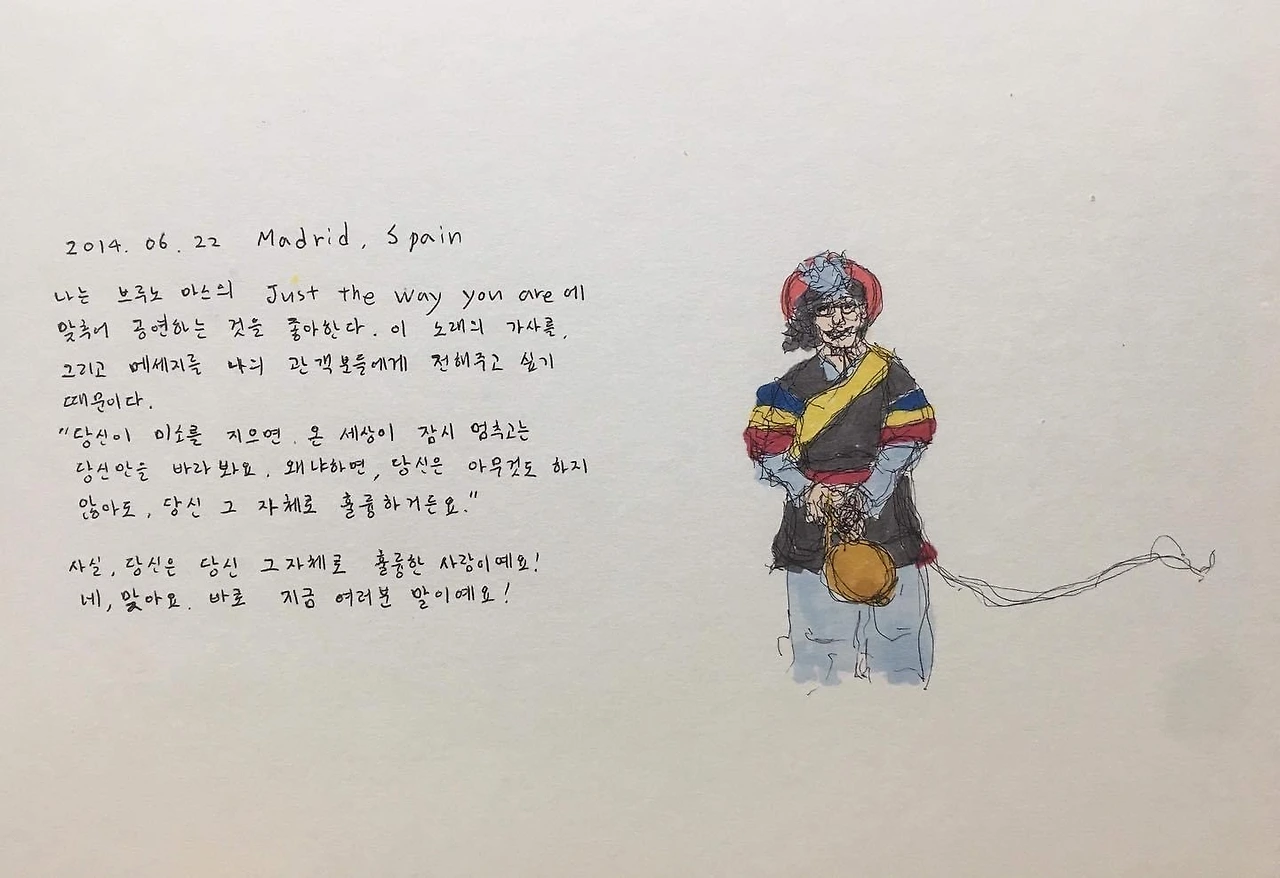 2014. 06. 22 Madrid, Spain
나는 브루노 마스의 Just the way you are 에
맞추어 공연하는 것을 좋아한다. 이 노래의 가사를,
그리고 메세지를 나의 관객분들에게 전해주고 싶기
때문이다.
"당신이 미소를 지으면. 온 세상이 잠시 멈추고는
당신만을 바라봐요. 왜냐하면, 당신은 아무것도 하지
않아도, 당신 그 자체로 훌륭하거든요."
사실, 당신은 당신 그 자체로 훌륭한 사람이예요!
네, 맞아요. 바로 지금 여러분 말이예요!